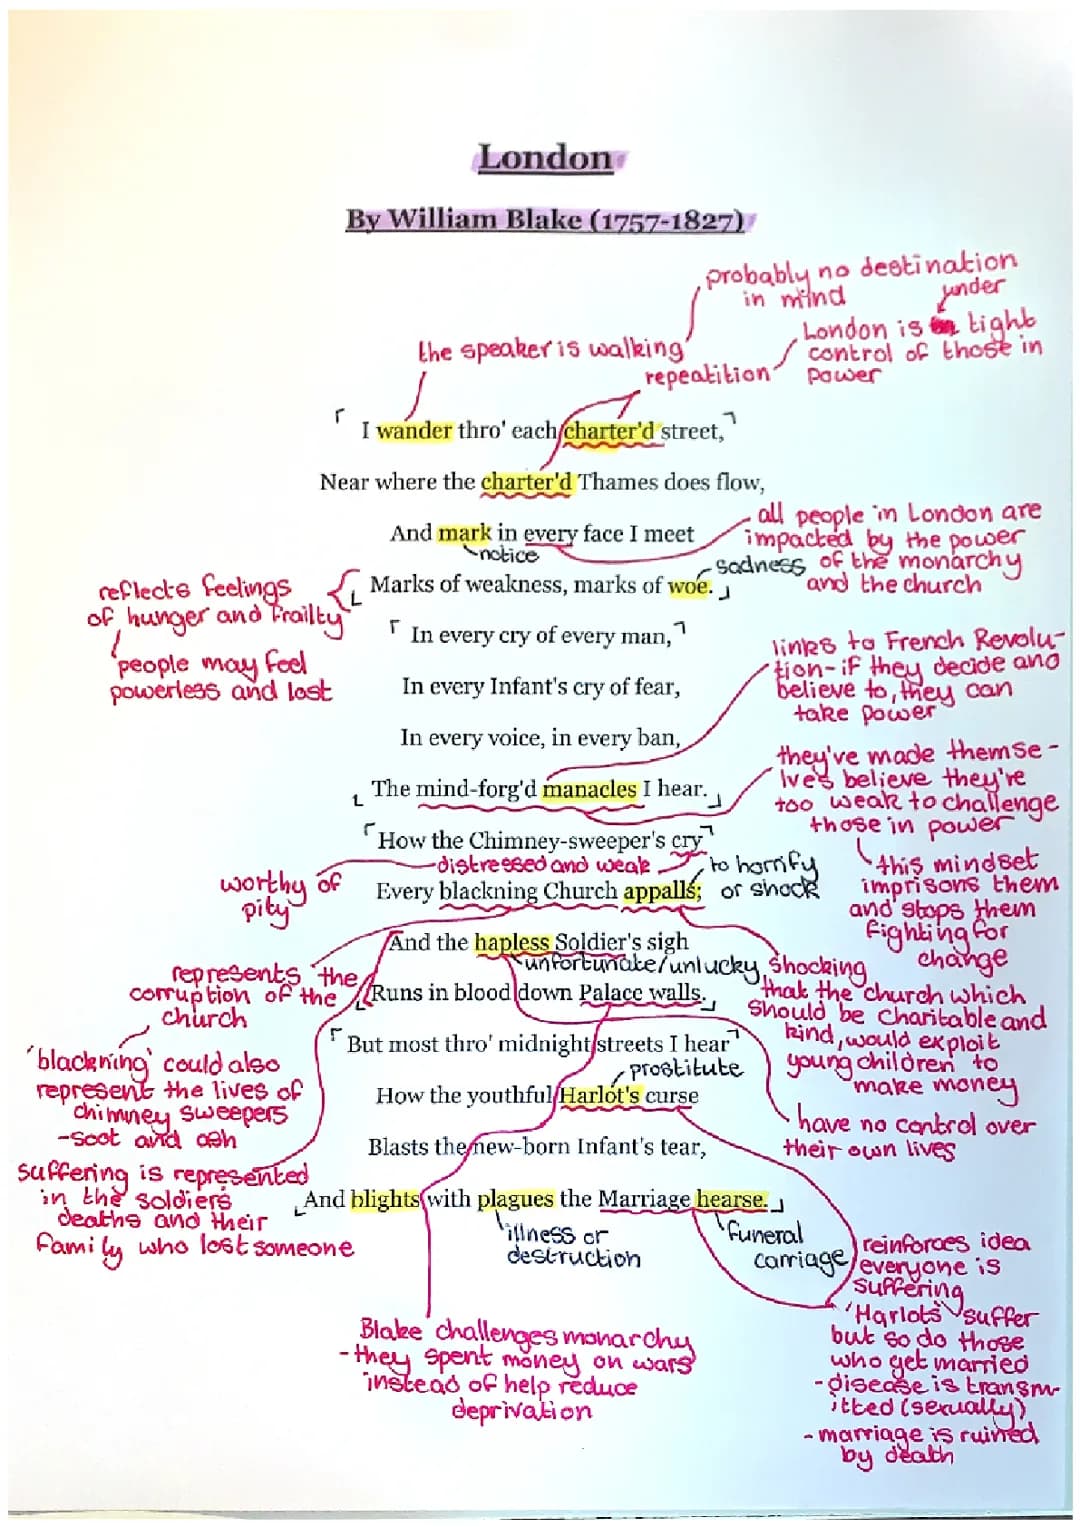 London
By William Blake (1757-1827)
probably no destination
in mind
under
London is tight
control of those in
power
the speaker is walking
repeatition
I wander thro' each charter'd street,
Near where the charter'd Thames does flow,
And mark in every face I meet
notice
all people in London are
impacted by the power
of the monarchy
and the church
sadness
Marks of weakness, marks of woe.
reflects feelings
of hunger and frailty
people may feel
powerless and lost
In every cry of every man,
In every Infant's cry of fear,
In every voice, in every ban,
The mind-forg'd manacles I hear.
links to French Revolu-
tion- if they decide and
believe to, they can
take power
they've made themse-
lves believe they're
too weak to challenge
those in power
this mindset
imprisons them
and stops them
fighting for
change
How the Chimney-sweeper's cry
distressed and weak
worthy of
pity
to horrify
or shock
Every blackning Church appalls;
And the hapless Soldier's sigh
unfortunate/unlucky
Runs in blood down Palace walls.
represents the
corruption of the
church
'blackning' could also
represent the lives of
chimney sweepers
-soot and ash
suffering is represented
in the soldiers
deaths and their
family who lost someone
shocking
that the church which
should be charitable and
kind, would exploit
young children to
make money
have no control over
their own lives
But most thro' midnight streets I hear
prostitute
How the youthful Harlot's curse
Blasts the new-born Infant's tear,
And blights with plagues the Marriage hearse.
illness or
destruction
funeral
carriage
reinforces idea
everyone is
suffering
'Harlots' suffer
but so do those
who get married
- disease is transm-
itted (sexually)
- marriage is ruined
by death
Blake challenges monarchy
- they spent money on wars
instead of help reduce
deprivation